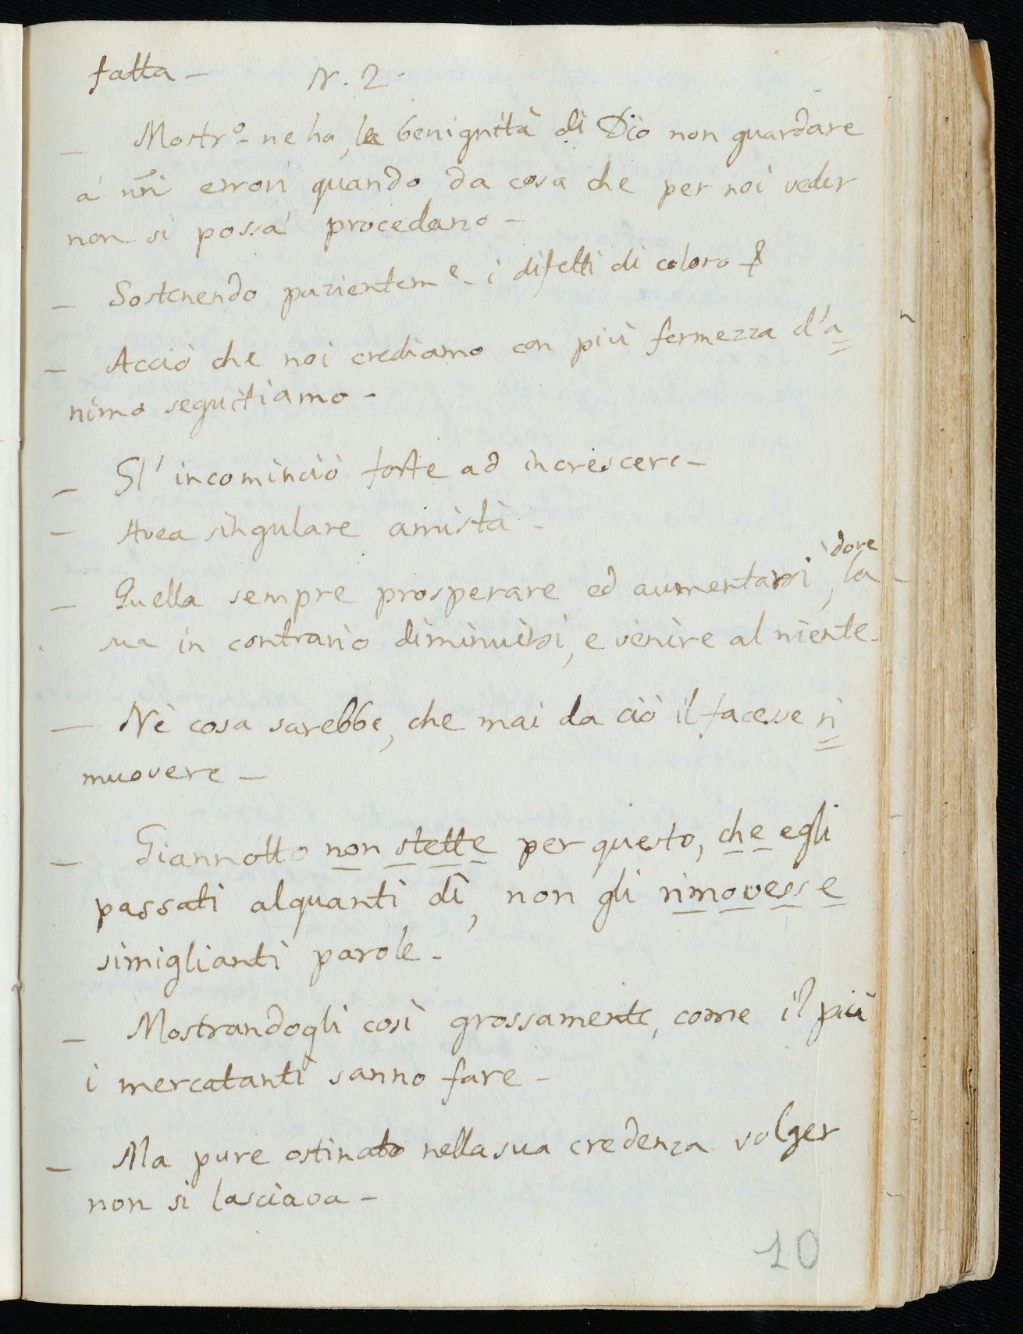 fatta - N. 2 -
- Mostr.º ne ha, la benignità di Dio non guardare
a' nr̃i errori quando da cosa che per noi veder
non si possa procedano -
- Sostenendo pazientem.e i difetti di coloro
- Acciò che noi crediamo con più fermezza d'a
nimo seguitiamo -
- Gl' incominciò forte ad increscere -
- Avea singulare amistà -
dove
- Quella sempre prosperare ed aumentarsi, la
sua in contrario diminuirsi, e venire al niente -
- Nè cosa sarebbe, che mai da ciò il facesse ri
muovere -
- Giannotto non stette per questo, che egli
passati alquanti dì, non gli rimovesse
simiglianti parole -
- Mostrandogli così grossamente, come il più
i mercatanti sanno fare -
- Ma pure ostinato nella sua credenza volger
non si lasciava -
10